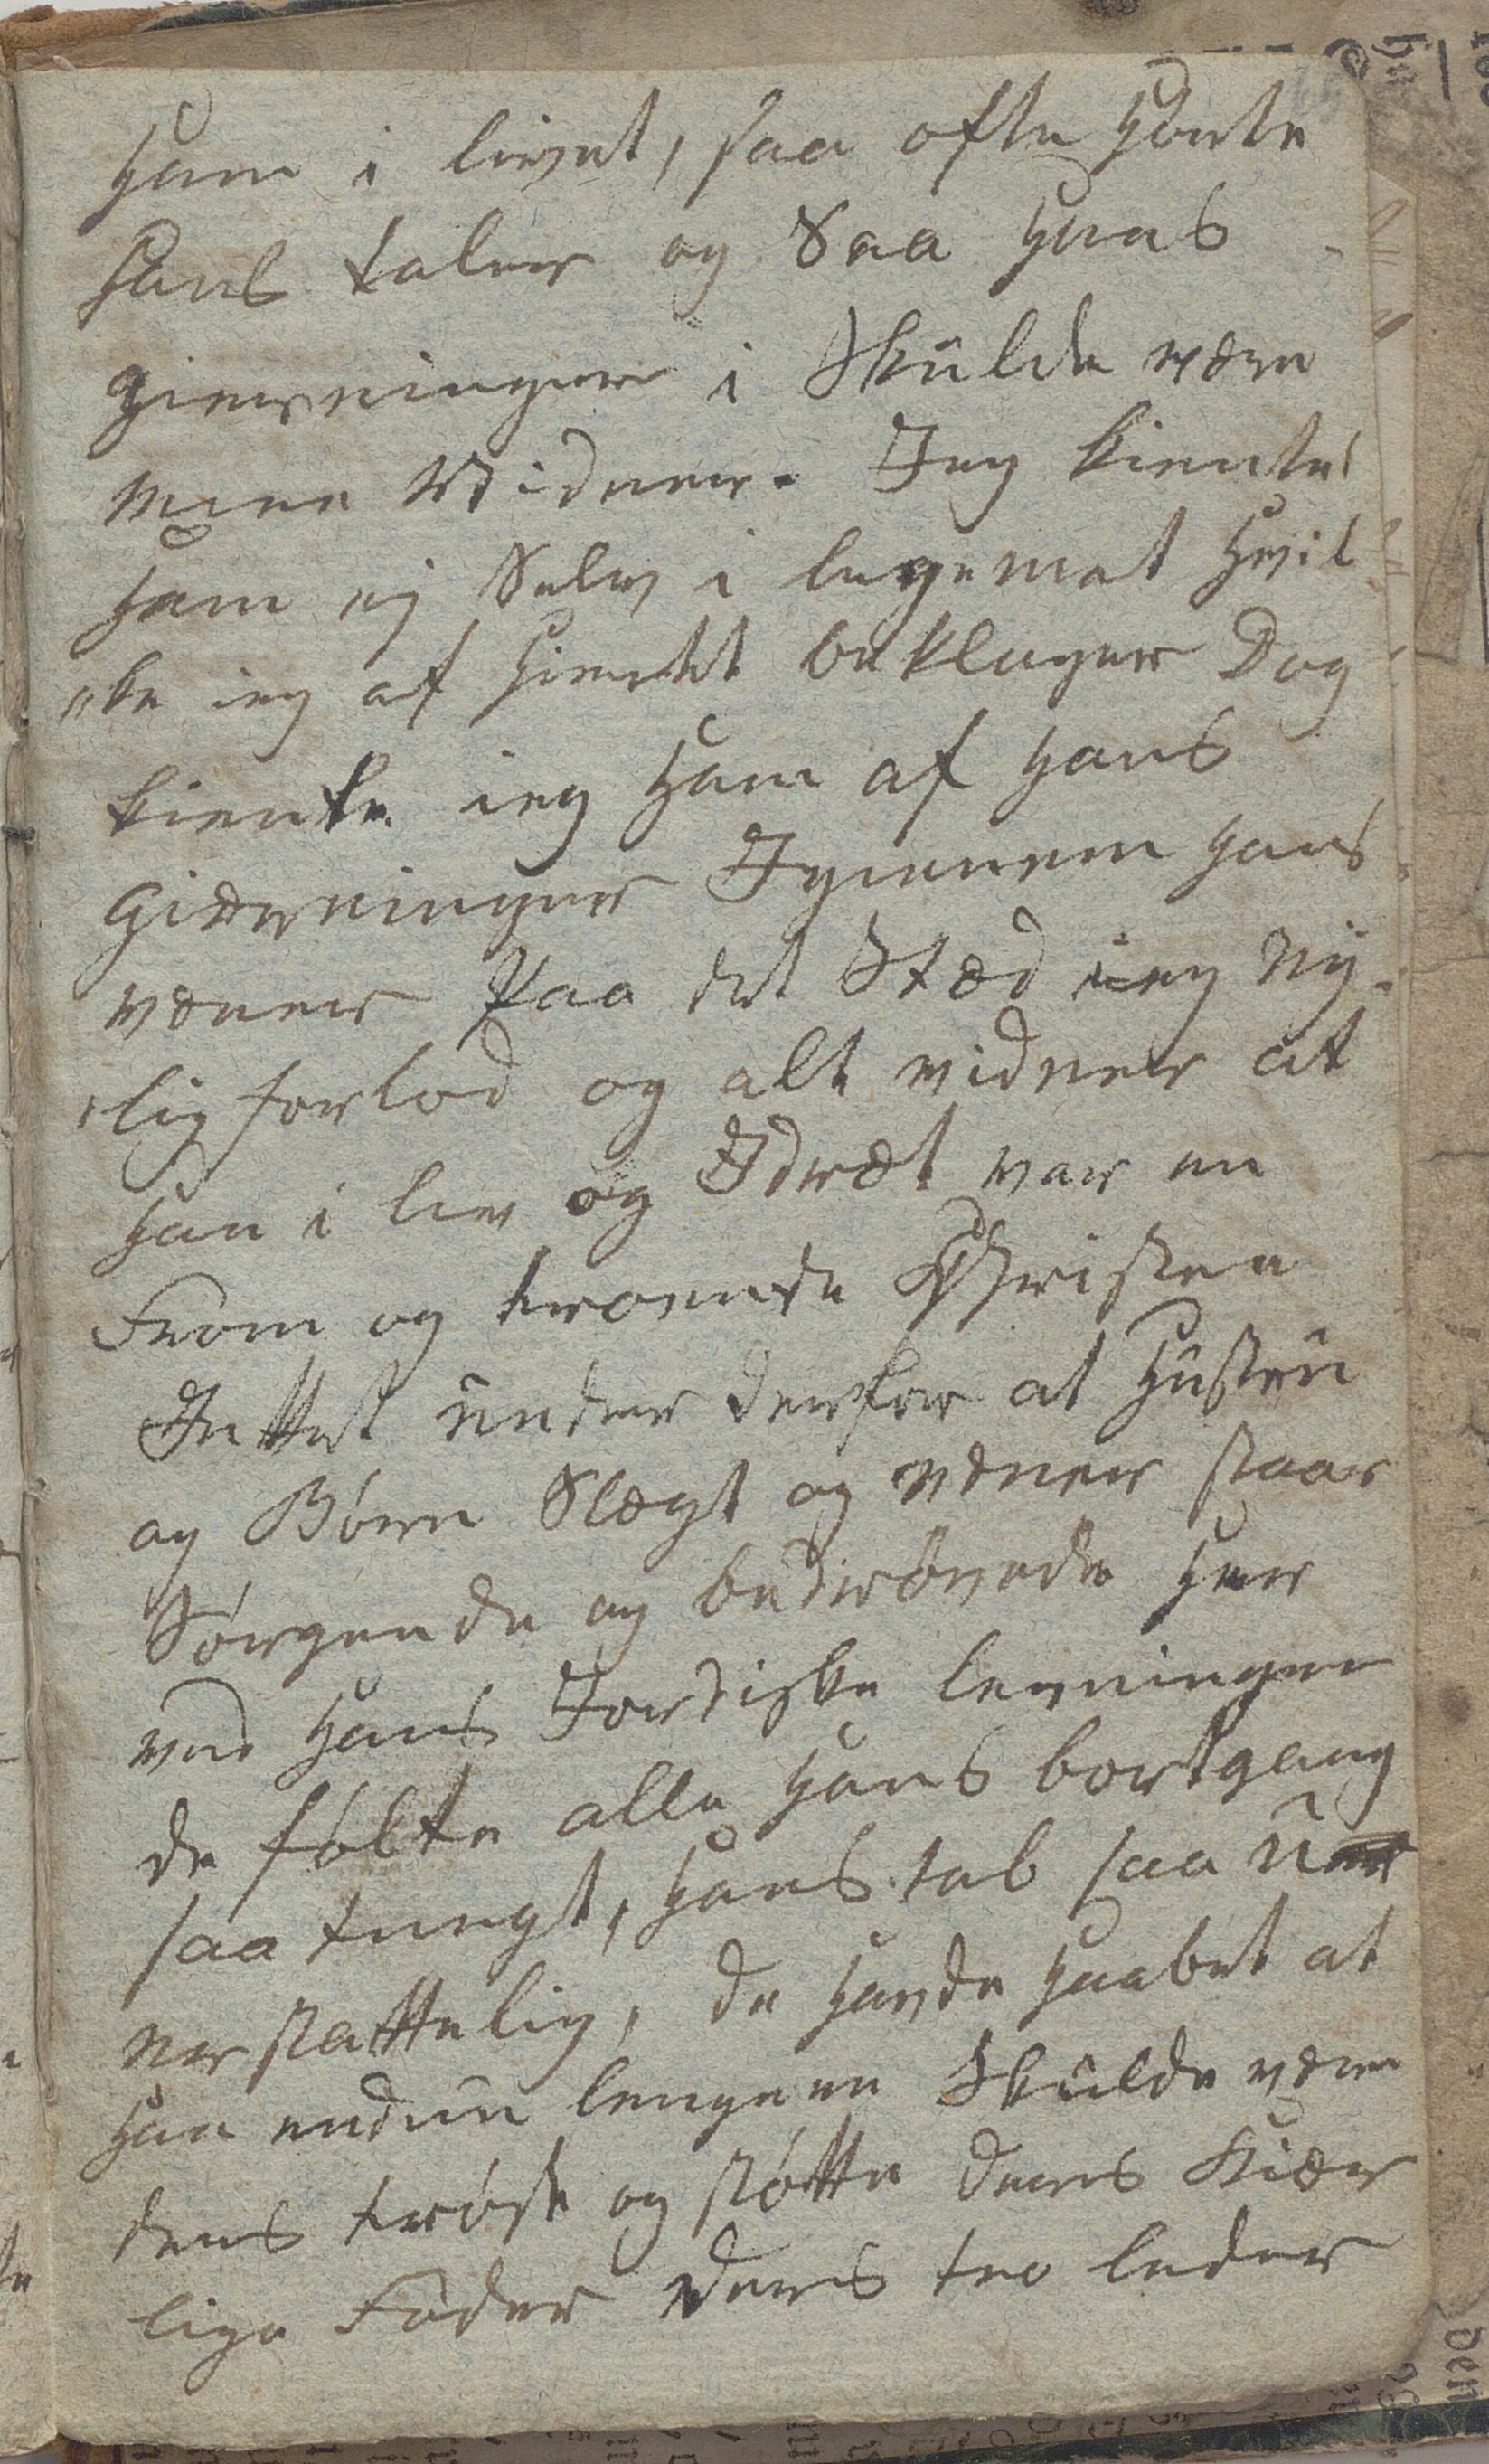 ham i livet, saa ofte hørte
hans taler og Saa hans
gierninger i Skulde være
mine Vidner. Jeg kiente
ham ej Selv i legemet hvil
"ke ieg af hiertet beklager Dog
kiente ieg ham af hans
gierninger Igiennem hans
vener paa det Stæd ieg ny-
"lig forlod og alt vidner at
han i liv og Idræt var en
From og troende Christen
Inttet under derfor at hustru
og Børn Slægt og vener staar
Sørgende og bedrøvede her
ved hans Jordiske levninger
de følte alle hans bortgang
saa tungt, hans tab saa u
nerstattelig, de havde haabet at
han endnu lengere Skulde være
deres trøst og støtte deres kiær
lige Fader deres tro leder